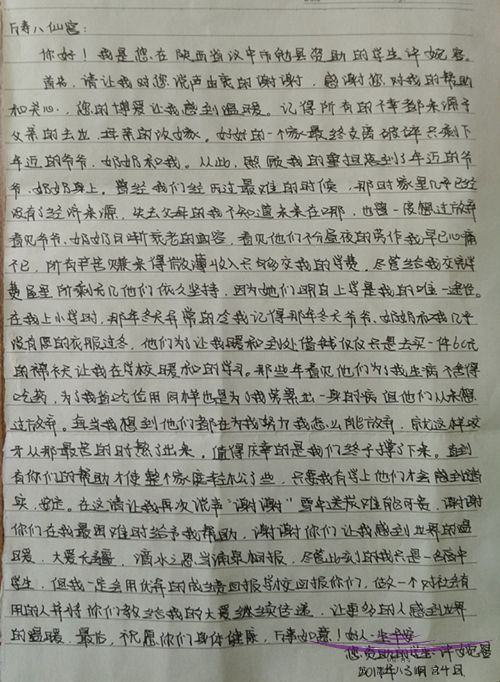 万寿八仙宫:
你好！我是您在陕西省汉中市勉县资助的学生许婉窑。
首先,请让我对您说声由衷的谢谢,感谢您对我的帮助
和关心,您的博爱让我感到温暖。记得所有的不幸都来源于
父亲的去世,母亲的改嫁。好好的一个家最终支离破碎只剩下
年迈的爷爷、奶奶和我。从此,照顾我的重担落到了年迈的爷
爷、奶奶身上。曾经我们经历过最难的时候,那时家里几乎已经
没有了经济来源,失去父母的我不知道未来在哪,也曾一度想过放弃
看见爷爷、奶奶日渐衰老的面容,看见他们不分昼夜的劳作我早已心痛
不已,所有辛苦赚来得微薄收入只够交我的学费,尽管给我交完学
费屋里所剩无几他们依久坚持,因为她们明白上学是我的唯一途径。
在我上小学时,那年冬天异常的冷我记得那年冬天爷爷、奶奶和我几乎
没有厚的衣服过冬,他们为了让我暖和到处借钱仅仅只是去买一件60元
的棉袄让我在学校暖和的学习。那些年看见他们为了我生病不舍得
吃药,为了我省吃俭用同样也是为了我劳累出一身的病但他们从未想
过放弃。每当我想到他们都在为我努力我怎么能放弃,就这样咬
牙从那最苦的时熬了出来,值得庆幸的是我们终于撑了下来。直到
有你们的帮助才使整个家庭轻松了些,只要我有学上他们才会感到踏
实、安定。在这请让我再次说声“谢谢谢”雪中送炭难能可贵,谢谢
你们在我最困难时给予我帮助,谢谢你们让我感到世界的温
暖、大爱无疆,滴水之恩当涌泉相报,尽管此刻的我只是一名高中
学生,但我一定会用优异的成绩回报学校回报你们,做一个对社会有
用的人并将你们教给我的大爱继续传递,让更多的人感到世界
的温暖。最后,祝愿你们身体健康,万事如意!好人一生平安
您资助的学生:许婉窑